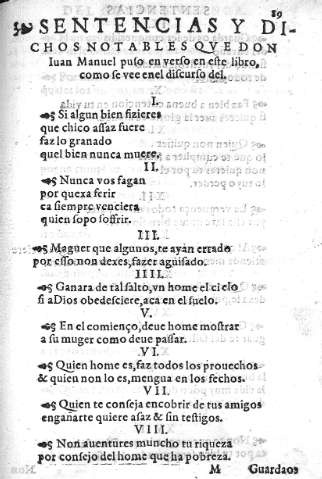 89
SENTENCIAS Y DI-
CHOS NOTABLES QVE DON
Iuan Manuel puso en verso en este libro,
como se vee enel discurso del.
I.
Si algun bien fizieres
que chico assaz fuere
fazlo granado
quel bien nunca muere.
II.
Nunca vos fagan
por quexa ferir
ca siempre venciera
quien sopo soffrir.
III.
Maguer que algunos, te ayan errado
por esso non dexes, fazer aguisado.
IIII.
Ganara de tal salto, vn home el cielo
si aDios obedesciere, aca en el suelo.
V.
En el comienço, deue home mostrar
a su muger como deue passar.
VI.
Quien home es, faz todos los prouechos
& quien non lo es, mengua en los fechos.
VII.
Quien te conseja encobrir de tus amigos
engañarte quiere asaz & sin testigos.
VIII.
Non auentures muncho tu riqueza
por consejo del home que ha pobreza.
M Guardaos